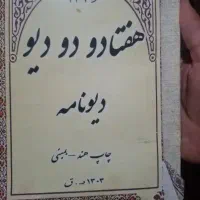 هفتادو دو دیو
دیونامه
چاپ هند - بمبئی
۱۳۰۳ ه . ق